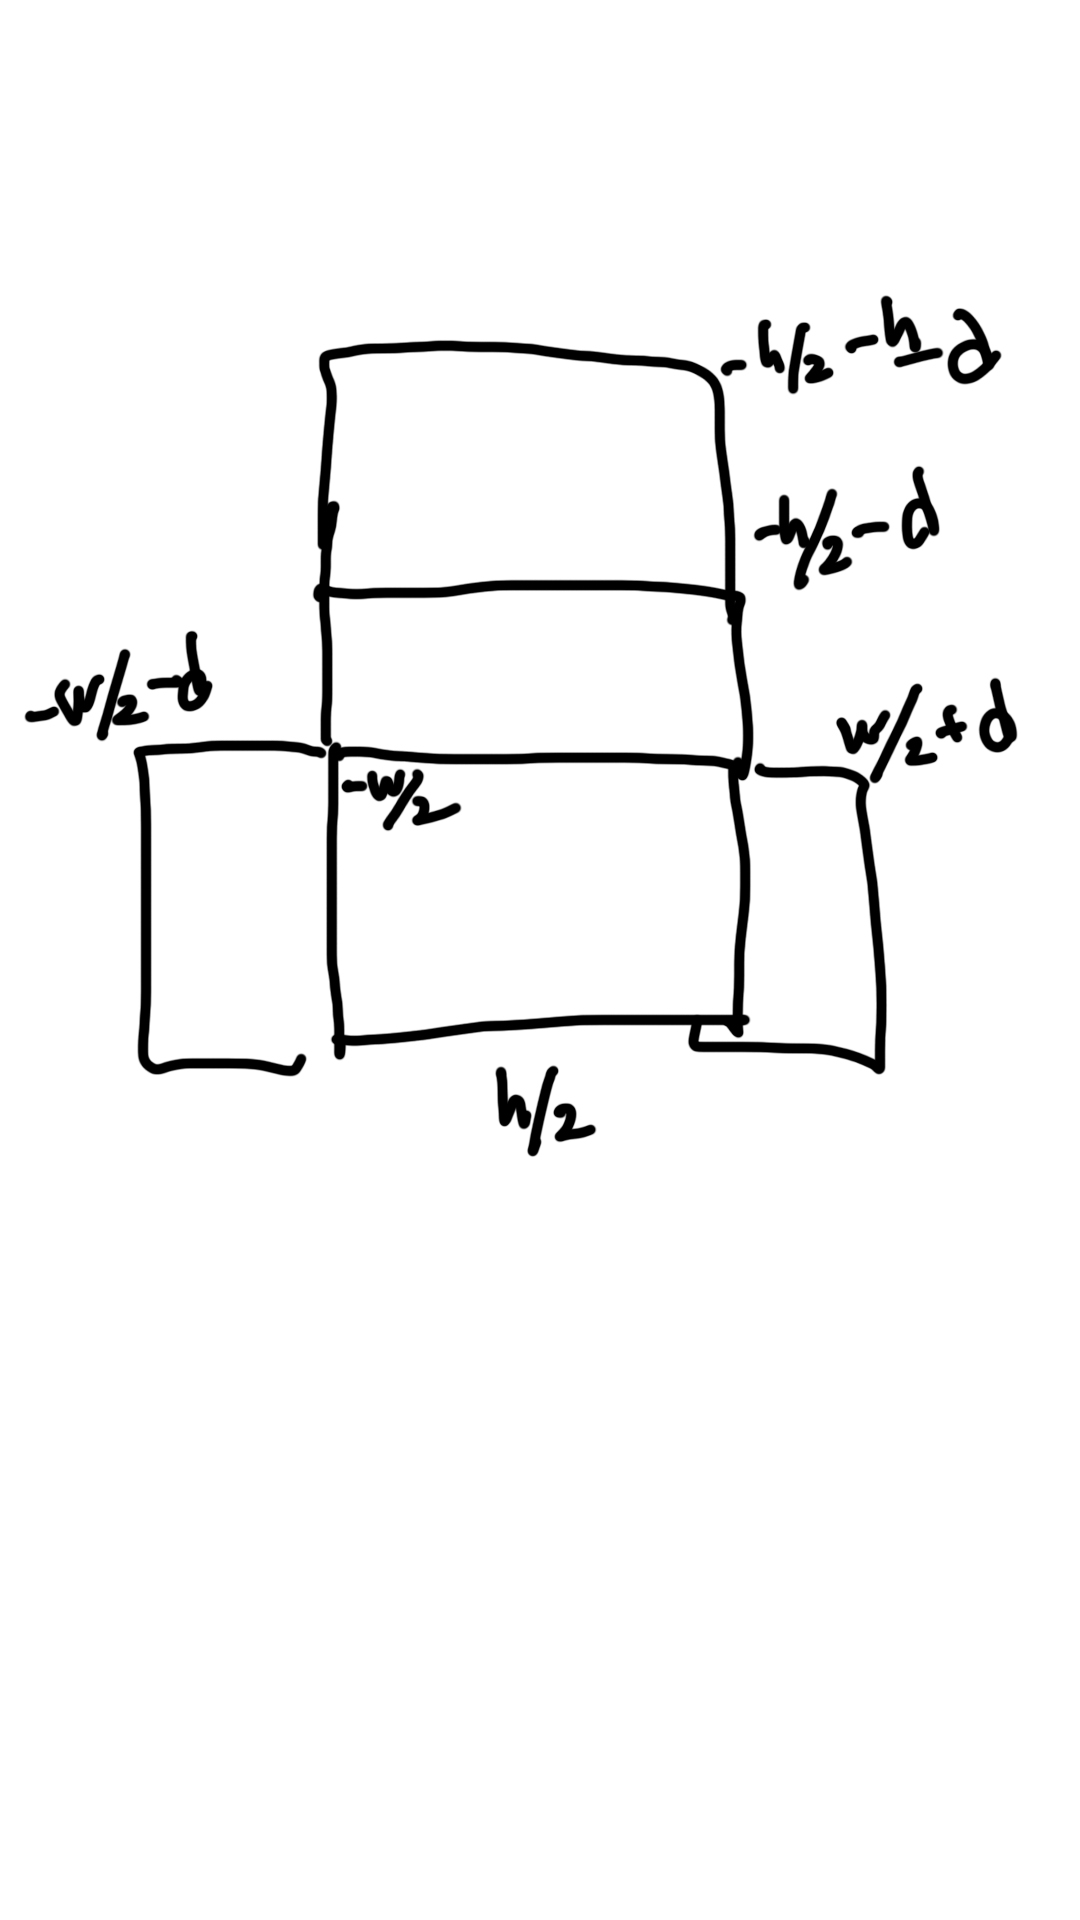 -h/2 - h - d
-h/2 - d
-w/2 - d
w/2 + d
-w/2
h/2